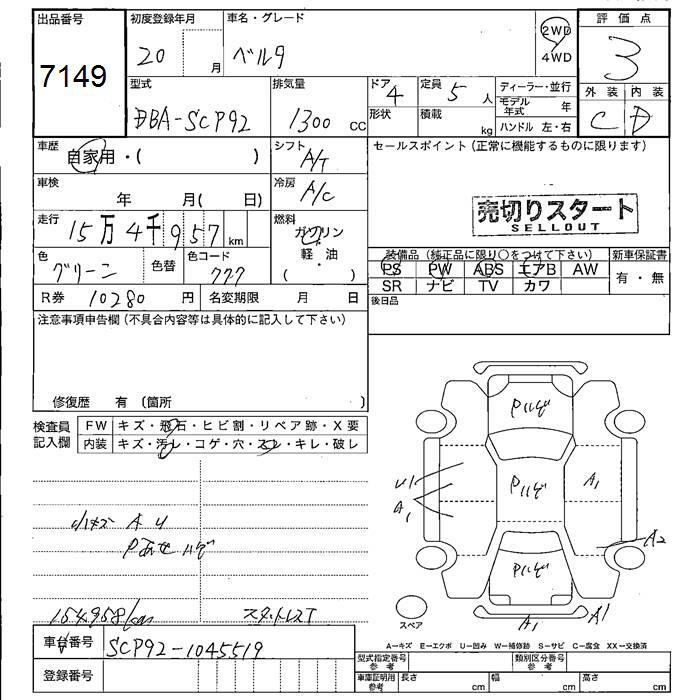 出品番号 初度登録年月 車名・グレード 評価点
7149 20 月 ベルタ 2WD 4WD 3
型式 排気量 ドア 定員 ディーラー・並行 外装 内装
DBA-SCP92 1300 cc 4 5 人 モデル年式 年 C D
形状 積載 kg ハンドル 左・右
車歴 シフト セールスポイント (正常に機能するものに限ります)
自家用・( ) A/T
車検 冷房
年 月( 日) A/C
売切りスタート
SELLOUT
走行 燃料
15万4千957km ガソリン
軽・油
( ・ )
色 色替 色コード 装備品 (純正品に限り○をつけて下さい) 新車保証書
グリーン 777 PS PW ABS エアB AW 有・無
SR ナビ TV カワ
R券 10280 円 名変期限 月 日 後日品
注意事項申告欄 (不具合内容等は具体的に記入して下さい)
修復歴 有 (箇所 )
検査員記入欄 FW キズ・飛石・ヒビ割・リペア跡・X要
内装 キズ・汚レ・コゲ・穴・スレ・キレ・破レ
Pハゲ
Pハゲ
A1
U1
A1
Pハゲ
A2
A1
A1
小キズ A U
Pあせ ハゲ
154958km スタットレスT
スペア
A=キズ E=エクボ U=凹み W=補修跡 S=サビ C=腐食 XX=交換済
車台番号 SCP92-1045519
型式指定番号参考 類別区分番号参考
登録番号 車庫証明用参考 長さ cm 幅 cm 高さ cm